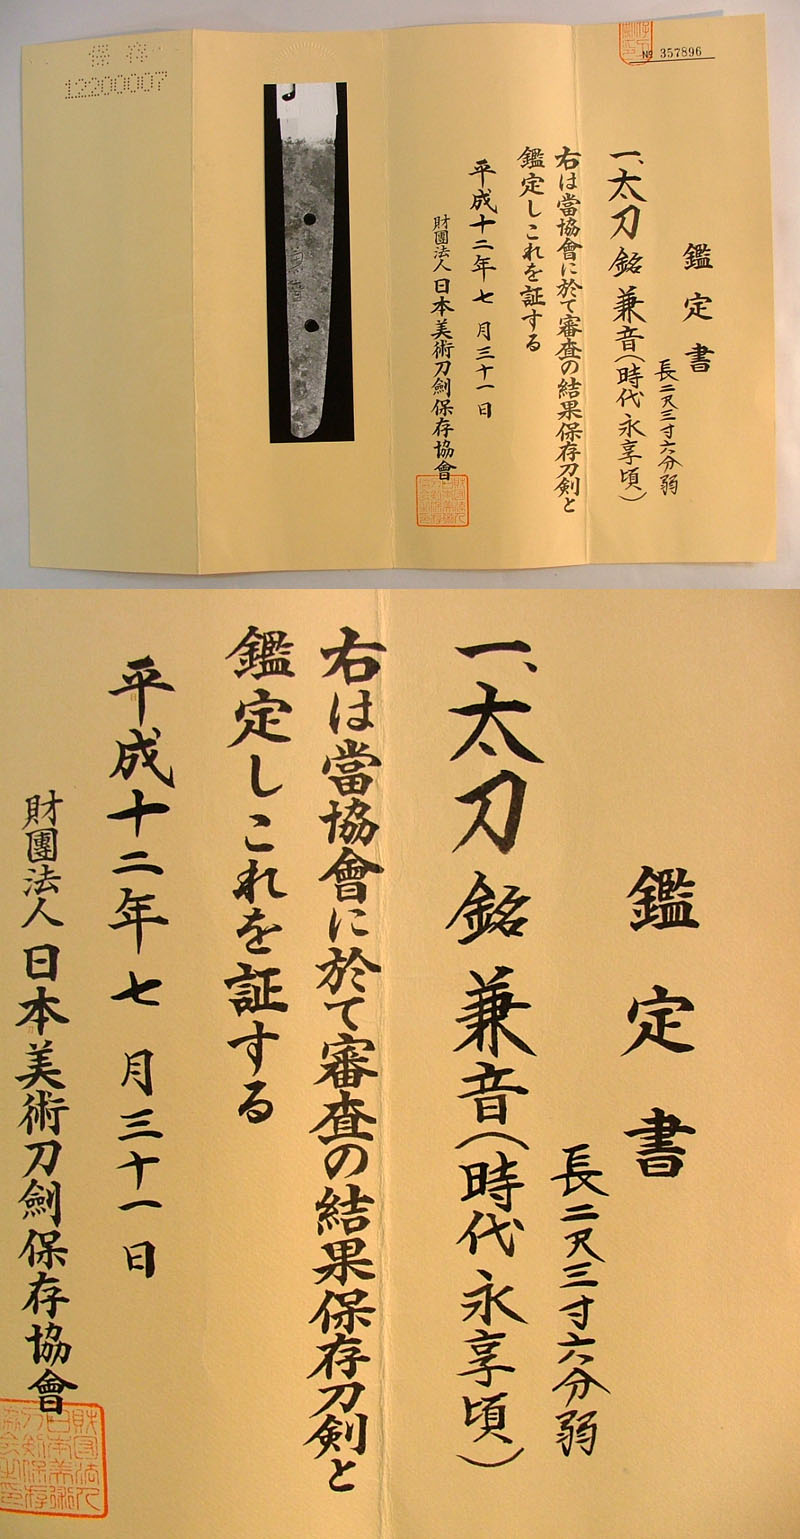 保存
12200007
№ 357896
鑑定書
長二尺三寸六分弱
一、太刀 銘 兼音（時代永享頃）
右は當協會に於て審査の結果保存刀剣と
鑑定しこれを証する
平成十二年七月三十一日
財團法人 日本美術刀劍保存協會
兼音
鑑定書
長二尺三寸六分弱
一、太刀 銘 兼音（時代永享頃）
右は當協會に於て審査の結果保存刀剣と
鑑定しこれを証する
平成十二年七月三十一日
財團法人 日本美術刀劍保存協會